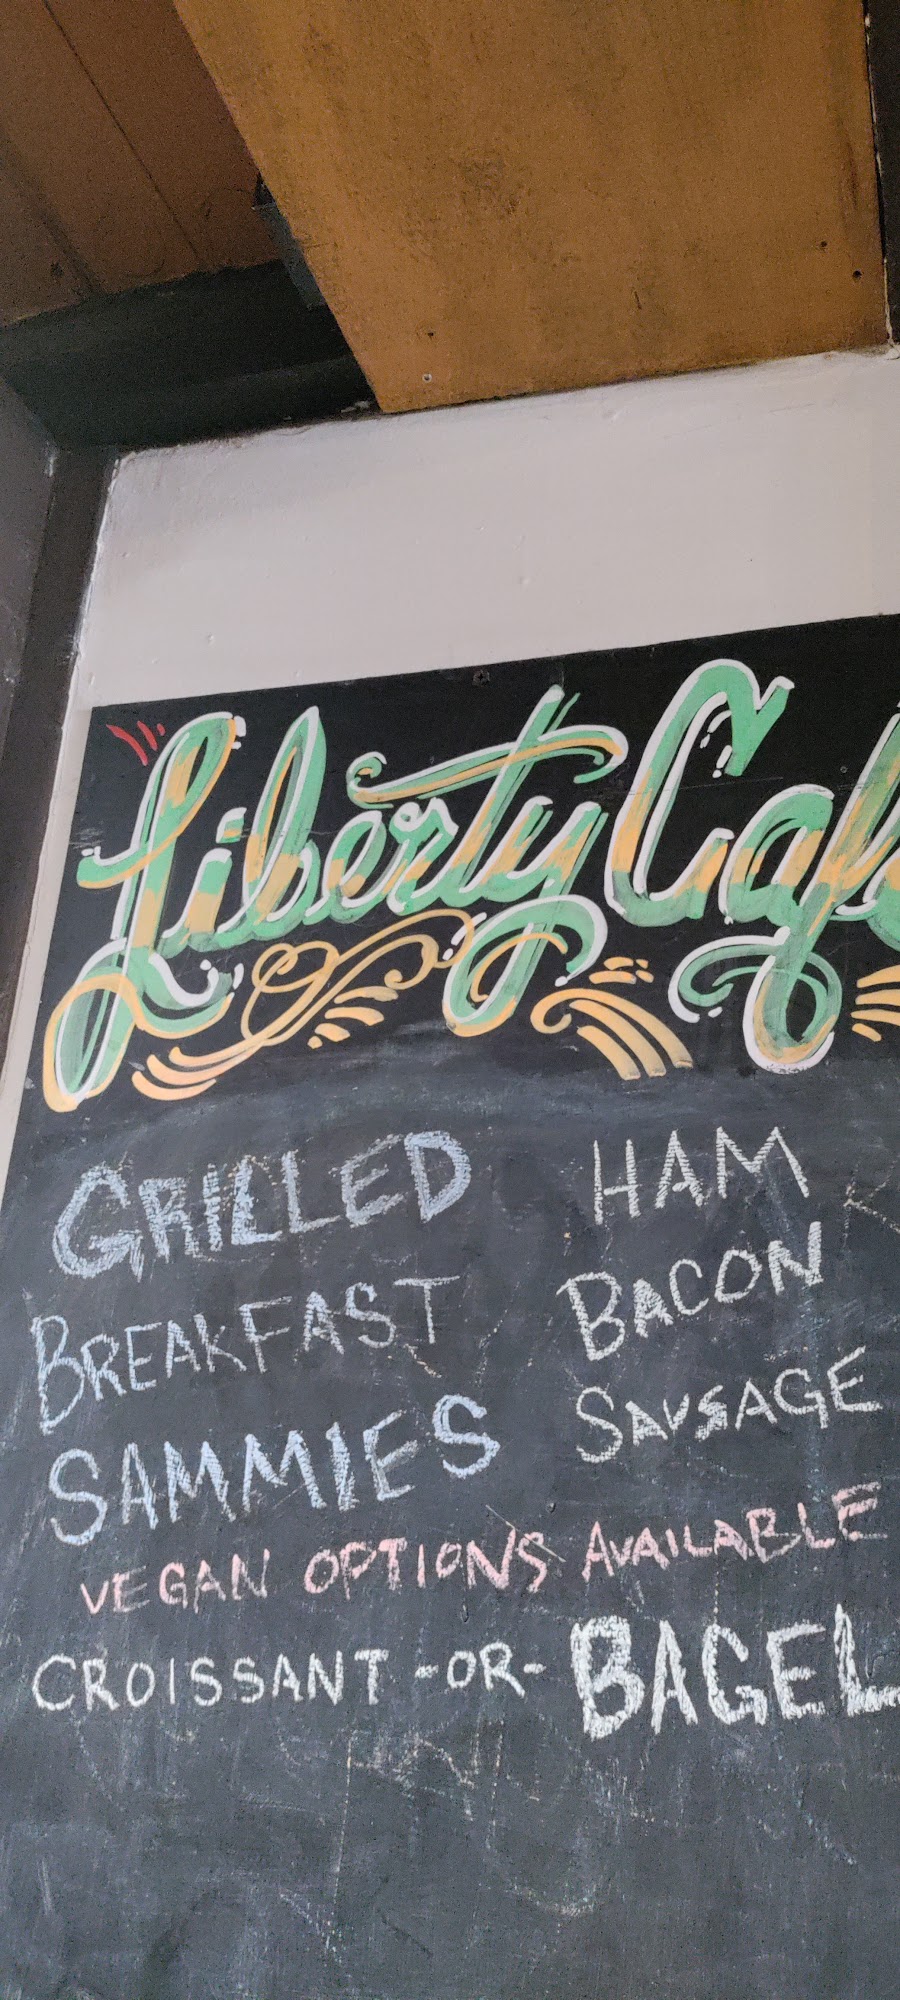 Liberty Cafe
GRILLED
BREAKFAST
SAMMIES
HAM
BACON
SAUSAGE
VEGAN OPTIONS AVAILABLE
CROISSANT -OR- BAGEL